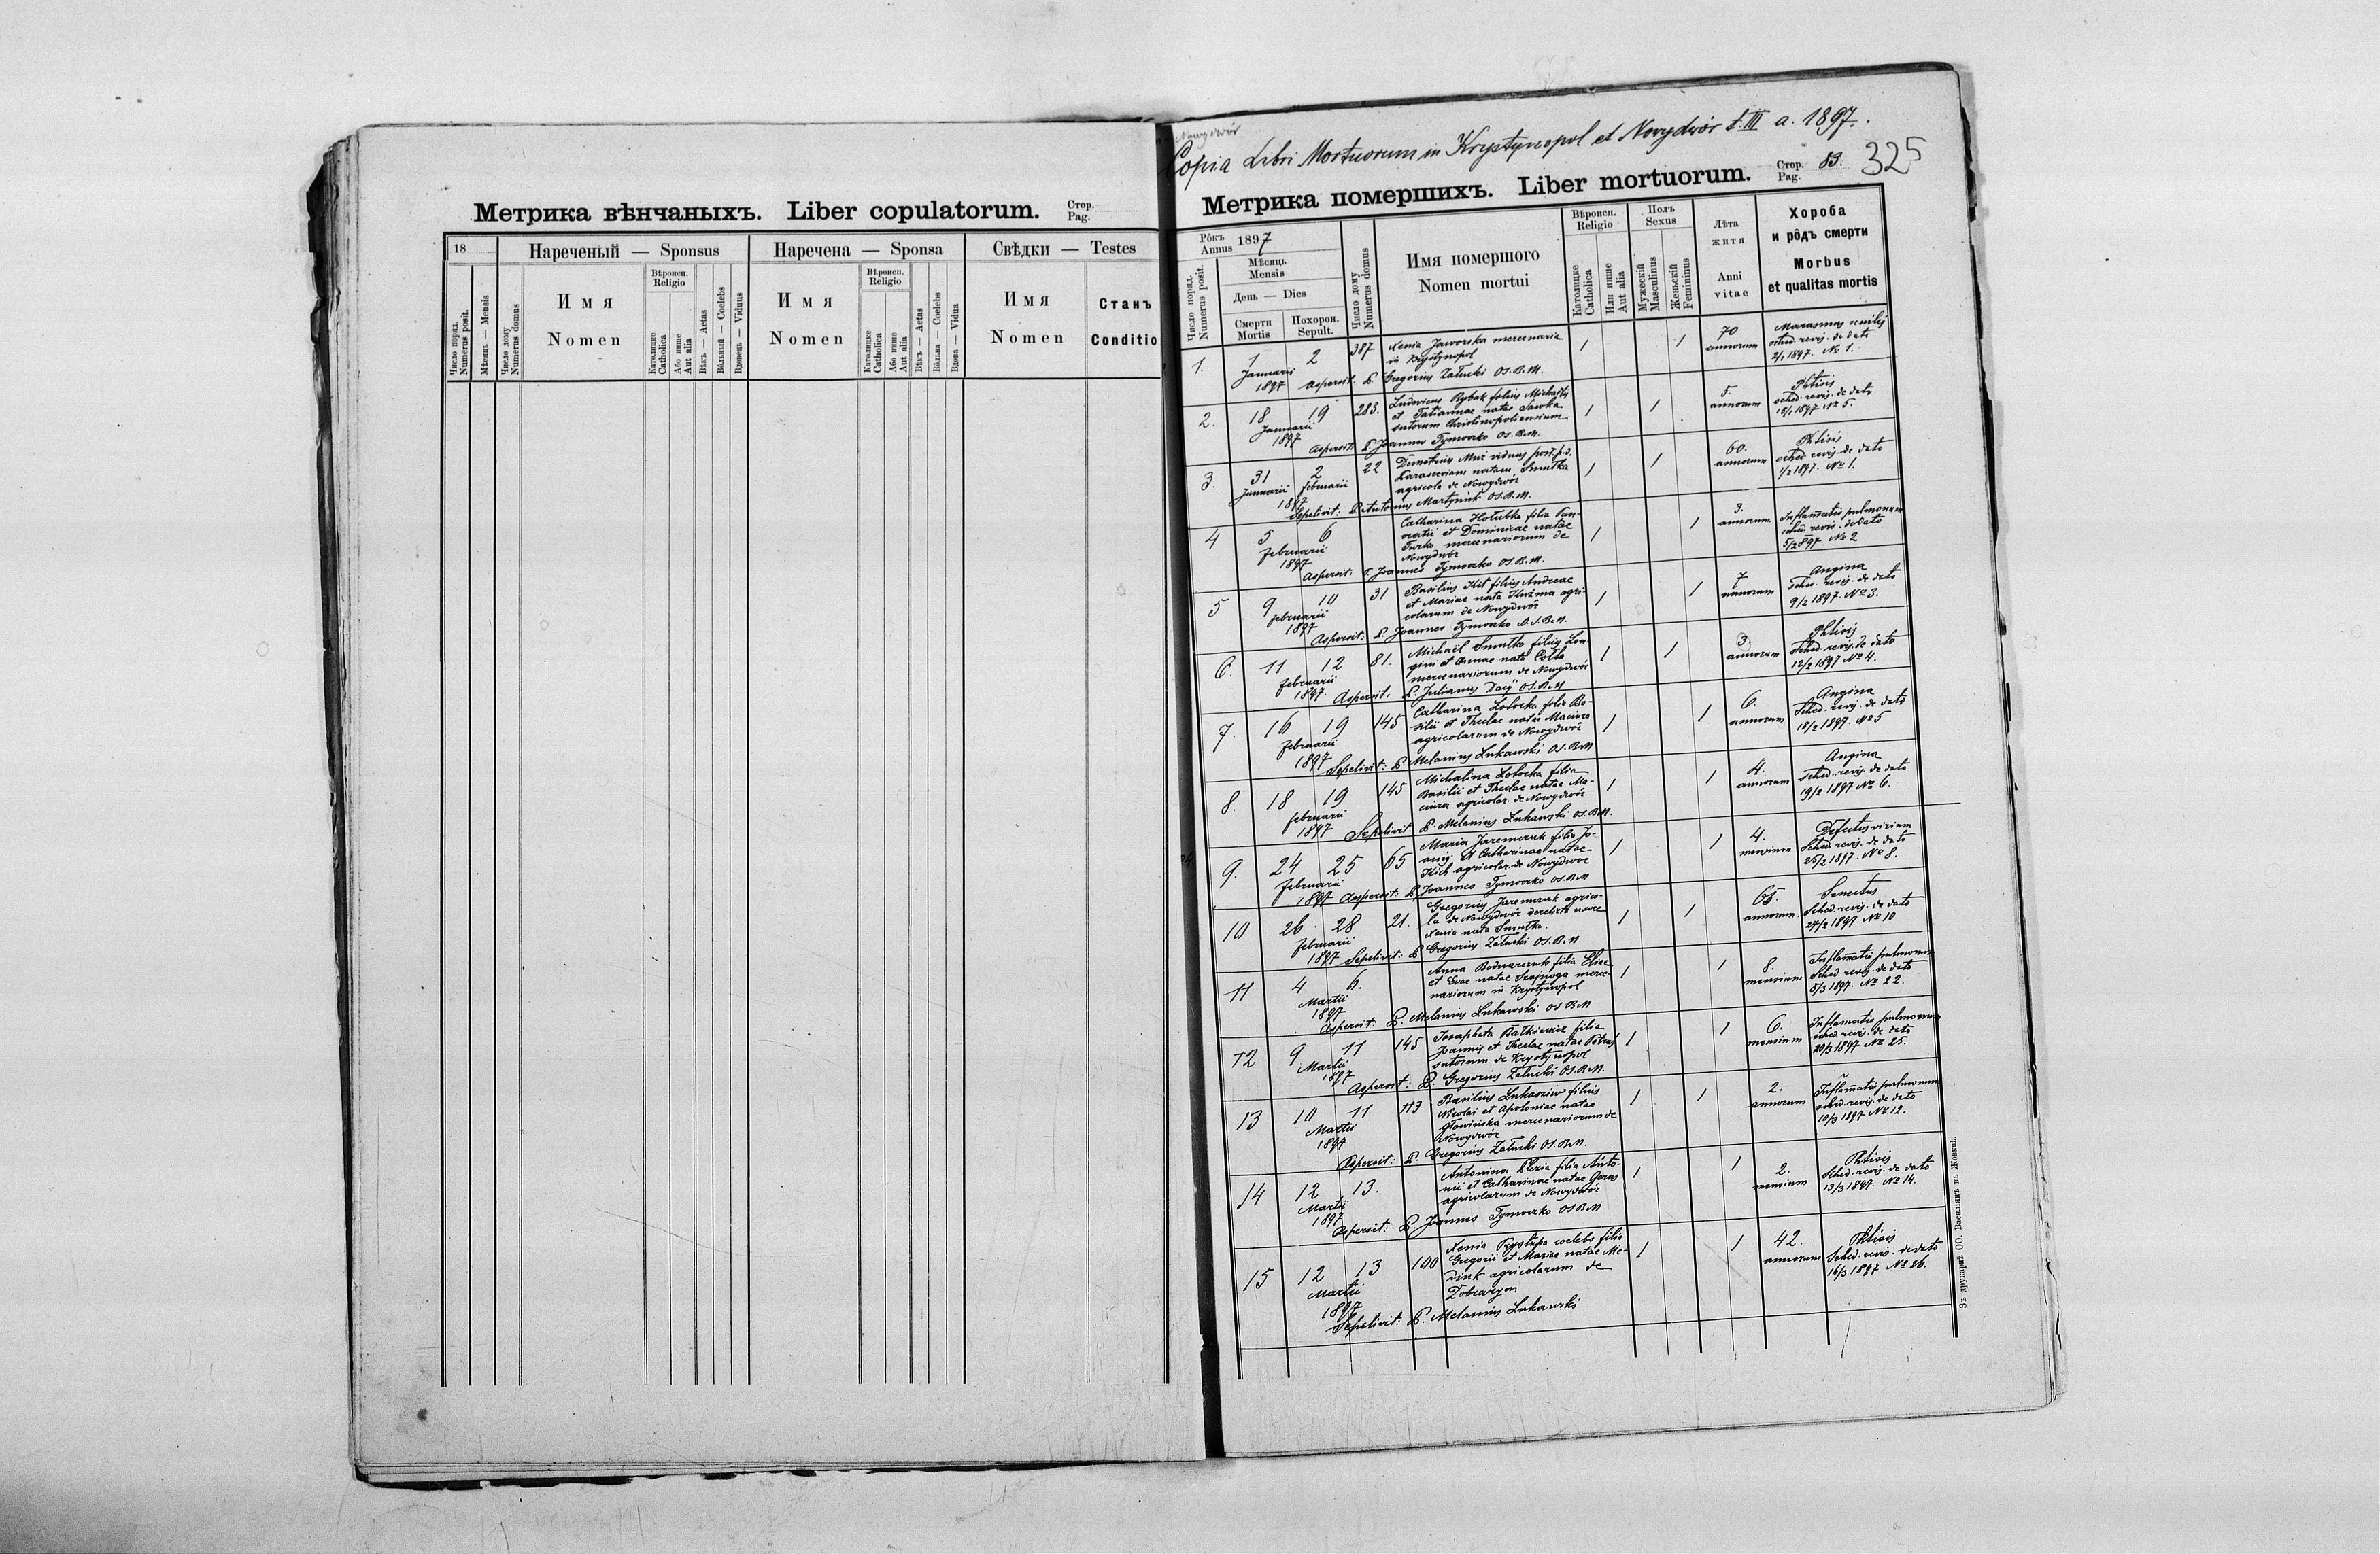 Метрика вѣнчаныхъ. Liber copulatorum. Стор. Pag.
18
Нареченый — Sponsus
Наречена — Sponsa
Свѣдки — Testes
Число поряд. Numerus posit.
Мѣсяць — Mensis
Число дому Numerus domus
Имя
Nomen
Вѣроисп.
Religio
Католицке Catholica
Або инше Aut alia
Вѣкъ — Aetas
Вôльный — Coelebs
Вдовець — Viduus
Имя
Nomen
Вѣроисп.
Religio
Католицке Catholica
Або инше Aut alia
Вѣкъ — Aetas
Вôльна — Coelebs
Вдова — Vidua
Имя
Nomen
Станъ
Conditio
Nowydwór
Copia Libri Mortuorum in Krystynopol et Nowydwór t. III a. 1897.
Метрика померших​ъ. Liber mortuorum. Стор. Pag. 83.
325
Рôкъ Annus 1897
Число поряд. Numerus posit.
Мѣсяць
Mensis
День — Dies
Смерти Mortis
Похорон. Sepult.
Число дому Numerus domus
Имя померш​ого
Nomen mortui
Вѣроисп.
Religio
Католицке Catholica
Или инше Aut alia
Полъ
Sexus
Мужескій Masculinus
Женьскій Femininus
Лѣта
житя
Anni
vitae
Хороба
и рôдъ смерти
Morbus
et qualitas mortis
1. 1 2 387 Xenia Jaworska mercenaria 1 1 70 Marasmus senilis
Januarii in Krystynopol annorum sched. revis. de dato
1897 Aspersit. P. Gregorius Załucki OS.B.M. 2/1 1897. No 1.
2. 18 19 283. Ludovicus Rybak filius Michaelis 1 1 5. Phtisis
Januarii et Tatiannae natae Sawka annorum sched. revis. de dato
1897 sutorum Christinopoliensium 18/1 1897 No 5.
Aspersit: P. Joannes Tymoczko OS.B.M.
3. 31 2 22 Demetrius viduus post p.d. 1 1 60. Phtisis
Januarii februarii natam Smutka annorum sched. revis. de dato
1897 agricola de Nowydwór 1/2 1897. No 1.
Sepelivit: P. Antonius Martyniuk OS.B.M.
4 5 6 Catharina Hołubka filia Pan- 1 1 3. Inflamatio pulmonum
februarii cratii et Dominicae natae annorum sched. revis. de dato
1897 Turka mercenariorum de 5/2 897 No 2
Nowydwór
Aspersit: P. Joannes Tymoczko OS.B.M.
5 9 10 31 Basilius Kit filius Andreae 1 1 7 Angina
februarii et Mariae nata Kuźma agri- annorum sched. revis. de dato
1897 colarum de Nowydwór 9/2 1897. No 3.
Aspersit: P. Joannes Tymoczko O.S.B.M.
6. 11 12 81. Michaël Smutko filius Lon- 1 1 3. Phtisis
februarii gini et Annae nata annorum Sched. revis. de dato
1897. mercenariorum de Nowydwór 12/2 1897 No 4.
Aspersit. P. Julianus OS.B.M
7. 16 19 145 Catharina filia Ba- 1 1 6. Angina
februarii silii et Theclae natae annorum Sched. revis. de dato
1897 agricolarum de Nowydwór 18/2 1897. No 5
Sepelivit: P. Melanius Lukawski OS.B.M
8. 18 19 145 Michalina filia 1 1 4. Angina
februarii Basilii et Theclae natae annorum sched. revis. de dato
1897 agricolar. de Nowydwór 19/2 1897 No 6.
Sepelivit: P. Melanius Lukawski OS.B.M.
9. 24 25 65 Maria Jaremczuk filia Jo- 1 1 4. Defectus virium
februarii annis et Catharinae natae mensium Sched. revis. de dato
1897 Kich agricolar. de Nowydwór 25/2 1897. No 8.
Aspersit: P. Joannes Tymoczko OS.B.M
10 26 28 21. Gregorius Jaremczuk agrico- 1 1 65. Senectus
februarii la de Nowydwór derelicta uxore annorum Sched. revis. de dato
1897 Xenia nata Smutko. 27/2 1897 No 10
Sepelivit: P. Gregorius Załucki OS.B.M
11 4 6. Anna Bodnarczuk filia Eliae 1 1 8. Inflamatio pulmonum
Martii et Evae natae merce- mensium Sched. revis. de dato
1897 nariorum in Krystynopol 5/3 1897. No 22.
Aspersit: P. Melanius Lukawski OS BM
12 9 11 145 Josaphata filia 1 1 6. Inflamatio pulmonum
Martii Joannis et Theclae natae mensium sched. revis. de dato
1897 sutorum de Krystynopol 20/3 1897 No 25.
Aspersit: P. Gregorius Załucki OS.B.M.
13 10 11 113 Basilius Lukasziw filius 1 1 2. Inflamatio pulmonum
Martii Nicolai et Apoloniae natae annorum sched. revis. de dato
1897 Głowińska mercenariorum de 10/3 1897 No 12.
Nowydwór
Aspersit: P. Gregorius Załucki OS.B.M.
14 12 13. Antonina filia Anto- 1 1 2. Phtisis
Martii nii et Catharinae natae mensium Sched. revis. de dato
1897 agricolarum de Nowydwór 13/3 1897. No 14.
Aspersit: P. Joannes Tymoczko OSBM
15 12 13 100 Xenia Prystupa coelebs filia 1 1 42. Phtisis
Martii Gregorii et Mariae natae annorum Sched. revis. de dato
1897 agricolarum de 16/3 1897 No 26.
Sepelivit: P. Melanius Lukawski
Зъ друкарнѣ ОО. Василіянъ въ Жовквѣ.